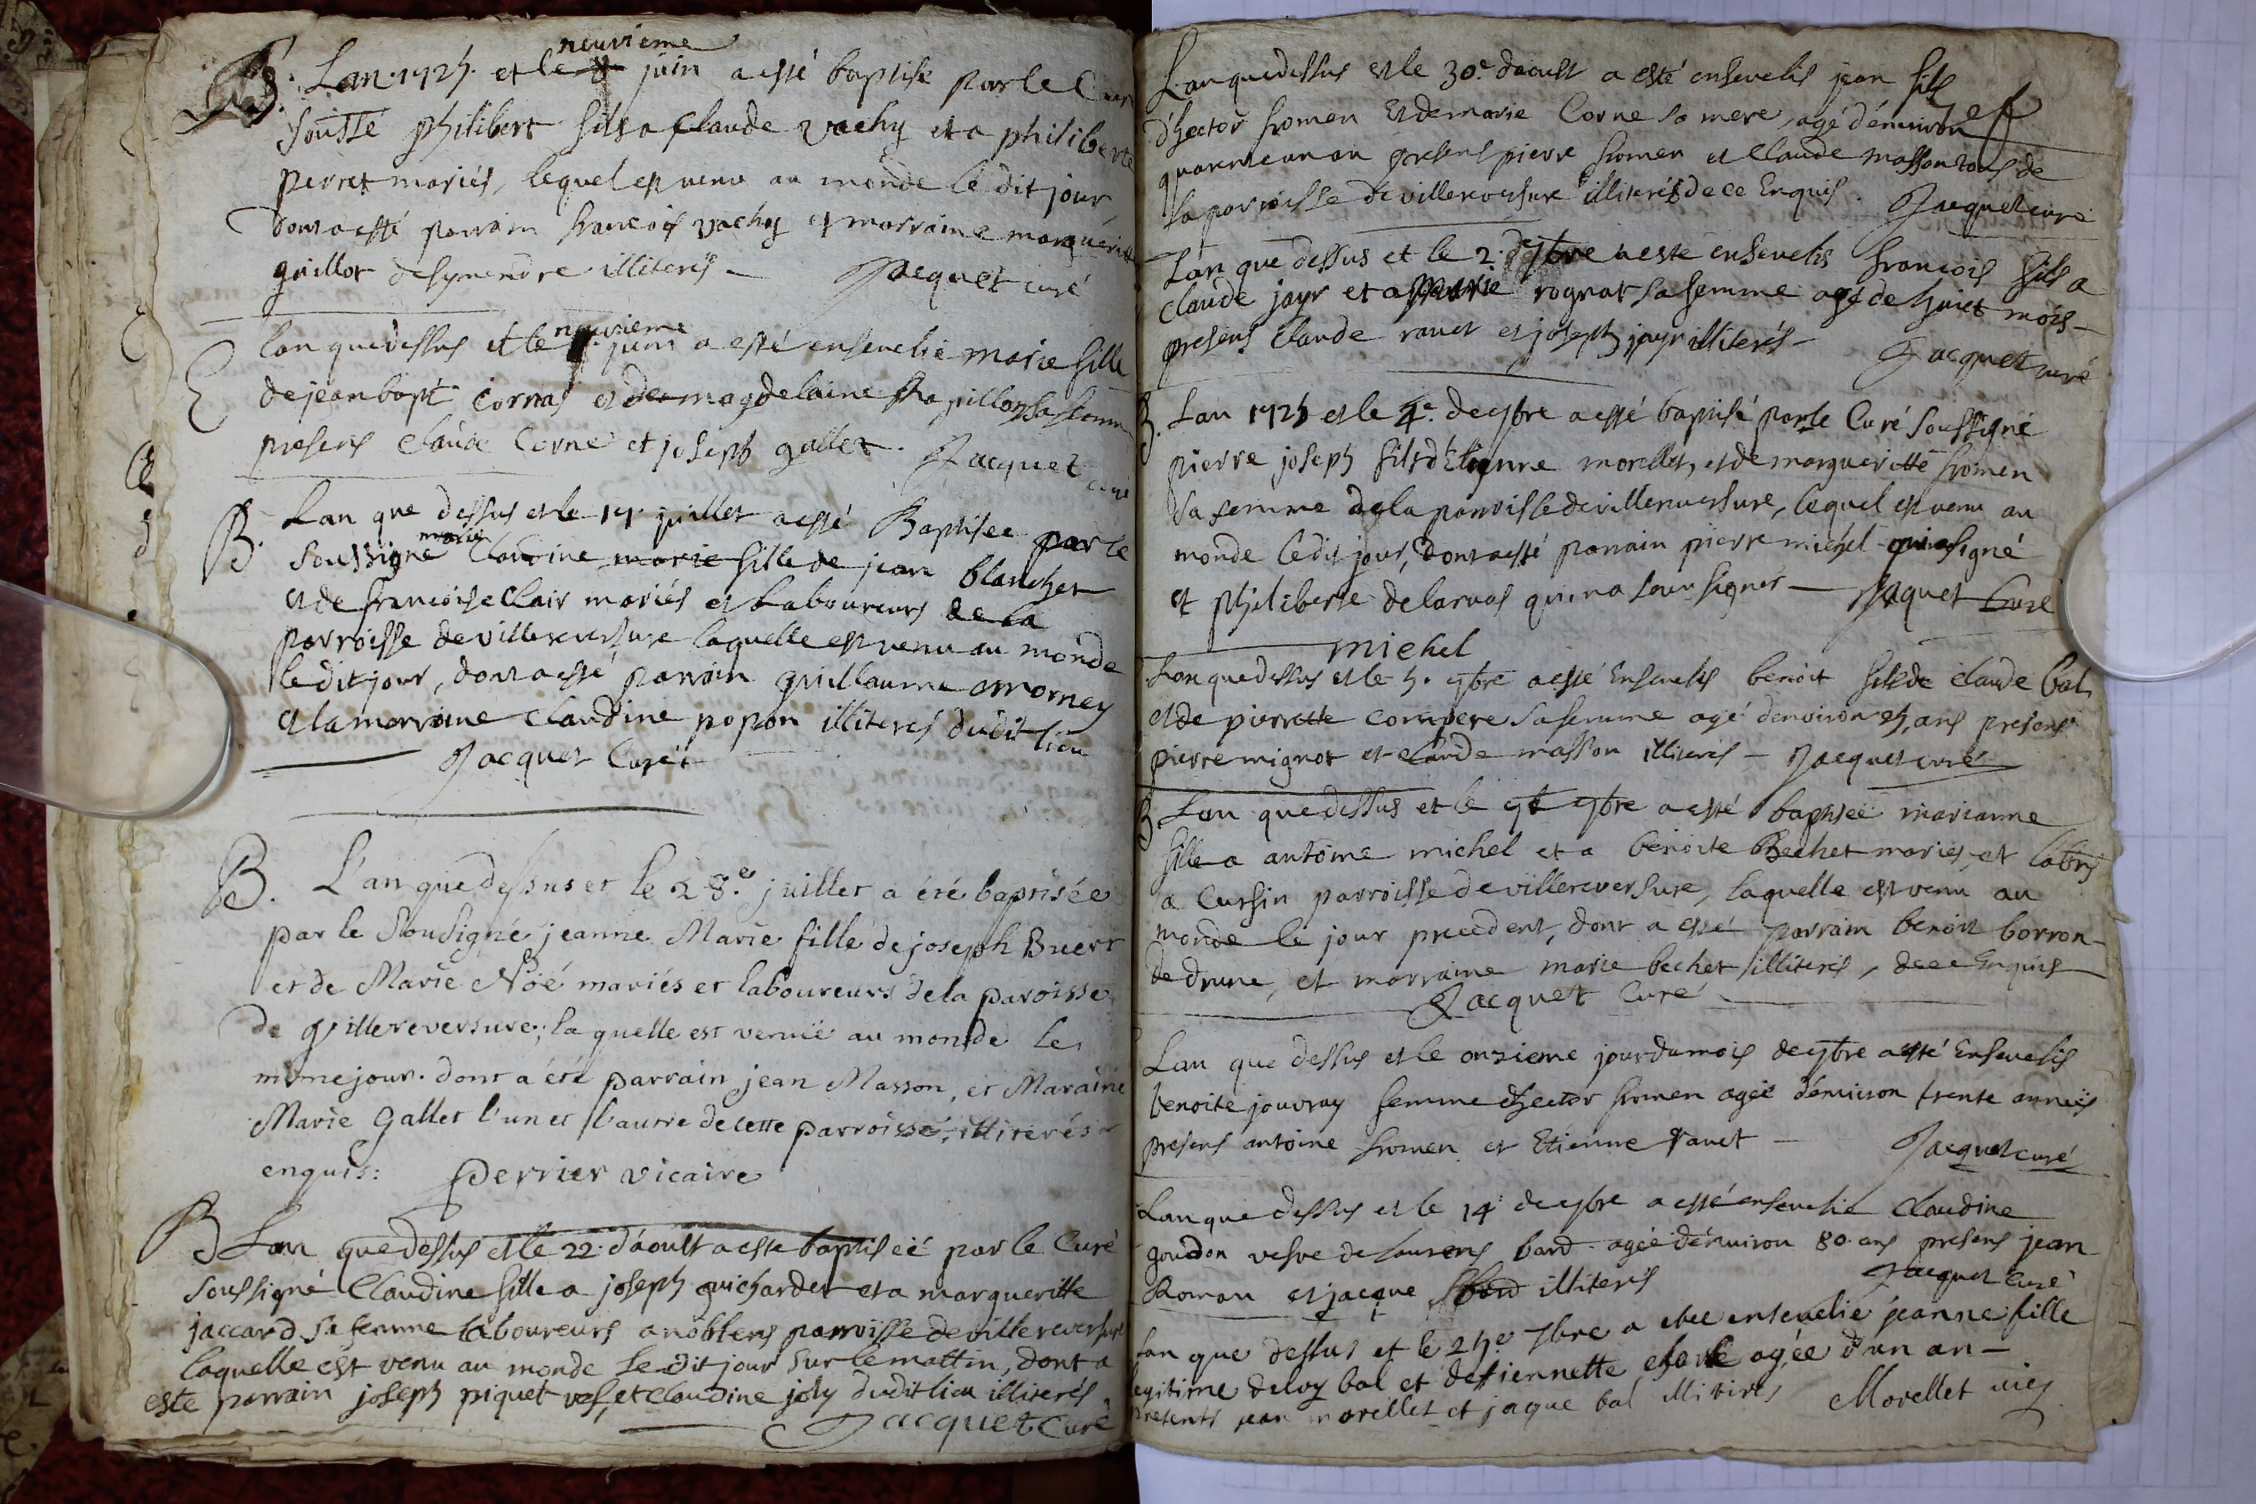 B. Lan 1725 et le neuvieme juin a esté baptisé par le
sousse philibert fils a Claude vachy et a philiberte
perret mariés, lequel est venu au monde le dit jour
dont a esté parrain francois vachy et marraine marguerite
guillot illiterés Jacquet curé
E lan que dessus et le neuvieme juin a esté ensevelie marie fille
de jean bapt. Cornas et de magdelaine papillon sa femme
presens claude Corne et joseph gallet. Jacquet curé
B. Lan que dessus et le 17 juillet a esté Baptisee par le
soussigné marie Claudine marie fille de jean blanchet
et de francoise Clair mariés et Laboureurs de la
parroisse de villereversure laquelle est venu au monde
le dit jour, dont a esté parrain guillaume morney
et la marraine claudine popon illiterés dudit lieu
Jacquet Curé
B. L'an que dessus et le 28.e juillet a été baptisée
par le Sousigné jeanne Marie fille de joseph Buert
et de Marie Noé mariés et laboureurs de la paroisse
de Villereversure; la quelle est venuë au monde le
mme jour. dont a été parrain jean Masson, et Maraine
Marie Gallet l'un et l'autre de cette parroisse, illiterés
enquis: Perrier vicaire
B Lan que dessus et le 22. d'aoust a esté baptiseé par le Curé
soussigné Claudine fille a joseph guichardet et a margueritte
jaccard sa femme laboureurs a noblens parroisse de villereversure
laquelle est venu au monde le dit jour sur le mattin, dont a
esté parrain joseph piquet et claudine joly dudit lieu illiterés
Jacquet Curé
Lan que dessus et le 30.e daoust a esté ensevelis jean fils
d'hector fromen et de marie Corne sa mere, agé d'environ
quarante un an presens pierre fromen et Claude masson tous de
la parroisse de villereversure illiterés de ce Enquis. Jacquet curé
Lan que dessus et le 2. de 7bre a esté ensevelis francois fils a
claude jayr et a marie rognat sa femme agé de huict mois
presens claude ravet et joseph jayr illiterés Jacquet curé
B. Lan 1725 et le 4.e de 7bre a esté baptisé par le Curé soussigné
pierre joseph fils d'Etienne morellet, et de margueritte fromen
sa femme de la parroisse de villereversure, lequel est venu au
monde le dit jour, dont a esté parrain pierre michel qui a signé
et philiberte delarvas qui n'a sceu signer Jaquet Curé
michel
Lan que dessus et le 5. 7bre a esté Ensevelis benoit fils de claude bal
et de pierrette compere sa femme agé denviron ans presens
pierre mignot et claude masson illiterés Jacquet curé
B. Lan que dessus et le 9e 7bre a esté baptisée marianne
fille a antoine michel et a benoite Bechet mariés et labrs
a Cursin parroisse de villereversure, laquelle est venu au
monde le jour precedent, dont a esté parrain benoit borron
de drune, et marraine marie bechet illiterés, de ce Enquis
Jacquet Curé
Lan que dessus et le onzieme jour du mois de 7bre a esté Ensevelis
benoite jouvray femme d'hector fromen agée d'environ trente années
presens antoine fromen et Etienne ravet Jacquet curé
Lan que dessus et le 14 de 7bre a esté ensevelie Claudine
goudon vefve de laurens bard agée d'environ 80. ans presens jean
Roman et jacque bard illiterés Jacquet Curé
Lan que dessus et le 25e 7bre a etee ensevelie jeanne fille
legitime de loy bal et d'estiennette agée d'un an
presents jean morellet et jaque bal illiterés Morellet vic